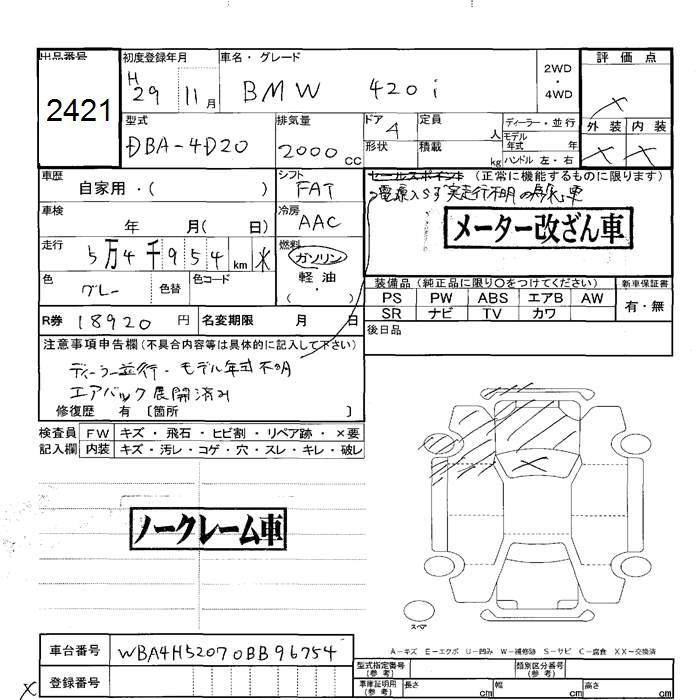 出品番号 初度登録年月 車名・グレード 2WD・4WD 評価点
2421 H29 11月 BMW 420i ×
型式 排気量 ドア 定員 人 ディーラー・並行 外装 内装
DBA-4D20 2000cc 4 形状 積載 kg モデル年式 年 ハンドル 左・右 × ×
車歴 自家用・( ) シフト FAT セールスポイント (正常に機能するものに限ります)
車検 年 月( 日) 冷房 AAC メーター改ざん車
走行 5万4千954km ※ 燃料 ガソリン 軽油 ・( )
色 グレー 色替 色コード
装備品 (純正品に限り○をつけてください) 新車保証書
PS PW ABS エアB AW 有・無
SR ナビ TV カワ
R券 18920円 名変期限 月 日 後日品
注意事項申告欄(不具合内容等は具体的に記入して下さい)
ディーラー並行・モデル年式不明
エアバック展開済み
修復歴 有 〔箇所 〕
検査員 FW キズ・飛石・ヒビ割・リペア跡・×要
記入欄 内装 キズ・汚レ・コゲ・穴・スレ・キレ・破レ
ノークレーム車
スペア
A-キズ E-エクボ U-凹み W-補修跡 S-サビ C-腐食 XX-交換済
車台番号 WBA4H52070BB96754
登録番号
型式指定番号(参考) 類別区分番号(参考)
車庫証明用(参考) 長さ cm 幅 cm 高さ cm